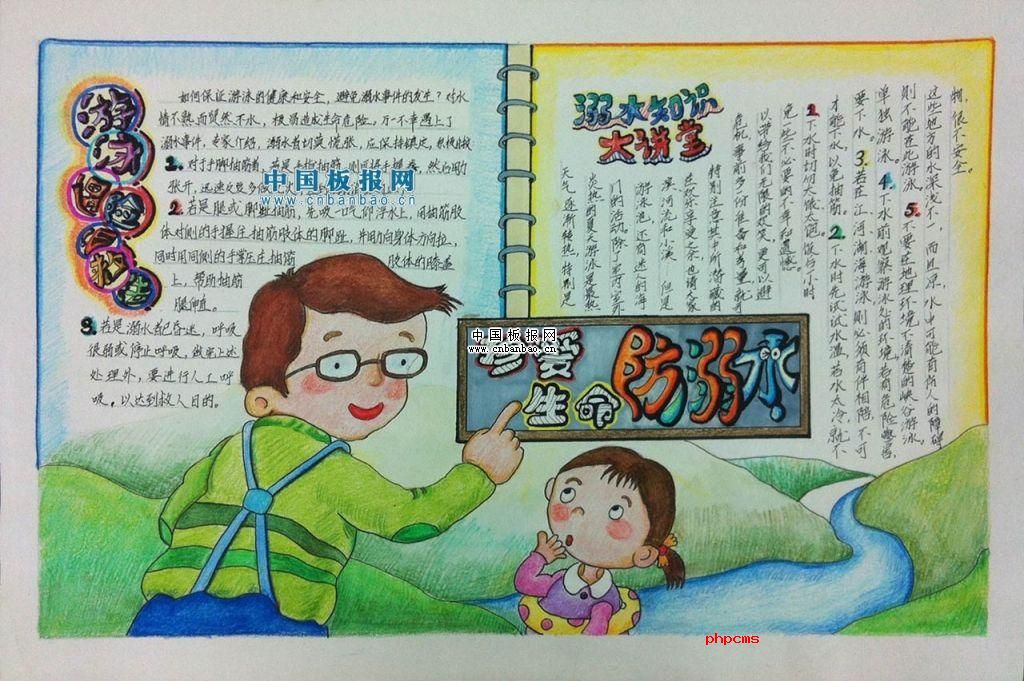 游泳
如何保证游泳的健康和安全，避免溺水事件的发生？对水
情不熟而贸然下水，极易造成生命危险。万一不幸遇上了
溺水事件，专家介绍，溺水者切莫慌张，应保持镇定，积极自救
1. 对于手脚抽筋者，若是手指抽筋，则可将手握拳，然后用力
张开，迅速反复多做
2. 若是腿或脚趾抽筋，先吸一口气仰浮水上，用抽筋肢
体对侧的手握住抽筋肢体的脚趾，并用力向身体方向拉，
同时用同侧的手掌压住抽筋 肢体的膝盖
上，帮助抽筋
腿伸直。
3. 若是溺水者已昏迷，呼吸
很弱或停止呼吸，做完上述
处理外，要进行人工呼
吸，以达到救人目的。
中国板报网
www.cnbanbao.cn
溺水知识
大讲堂
天气逐渐转热，特别是
炎热的夏天游泳是最热
门的活动。除了室内室外
游泳池，还有附近的海
滨河流和小溪。但是
在欢乐享受之余，也请大家
特别注意其中所潜藏的
危机，事前多一份准备和考量，就
可以带给我们无限的欢笑，更可以避
免一些不必要的不幸和遗憾。
1. 下水时切勿太饿、太饱。饭后一小时
才能下水，以免抽筋。2. 下水时先试试水温，若水太冷，就不
要下水。3. 若在江、河、湖、海游泳，则必须有伴相陪，不可
单独游泳。4. 下水前观察游泳处的环境，若有危险警告，
则不能在此游泳。5. 不要在地理环境不清楚的峡谷游泳。
这些地方的水深浅不一，而且凉，水中可能有伤人的障碍
物，很不安全。
中国板报网
www.cnbanbao.cn
珍爱
生命
防溺水
phpcms